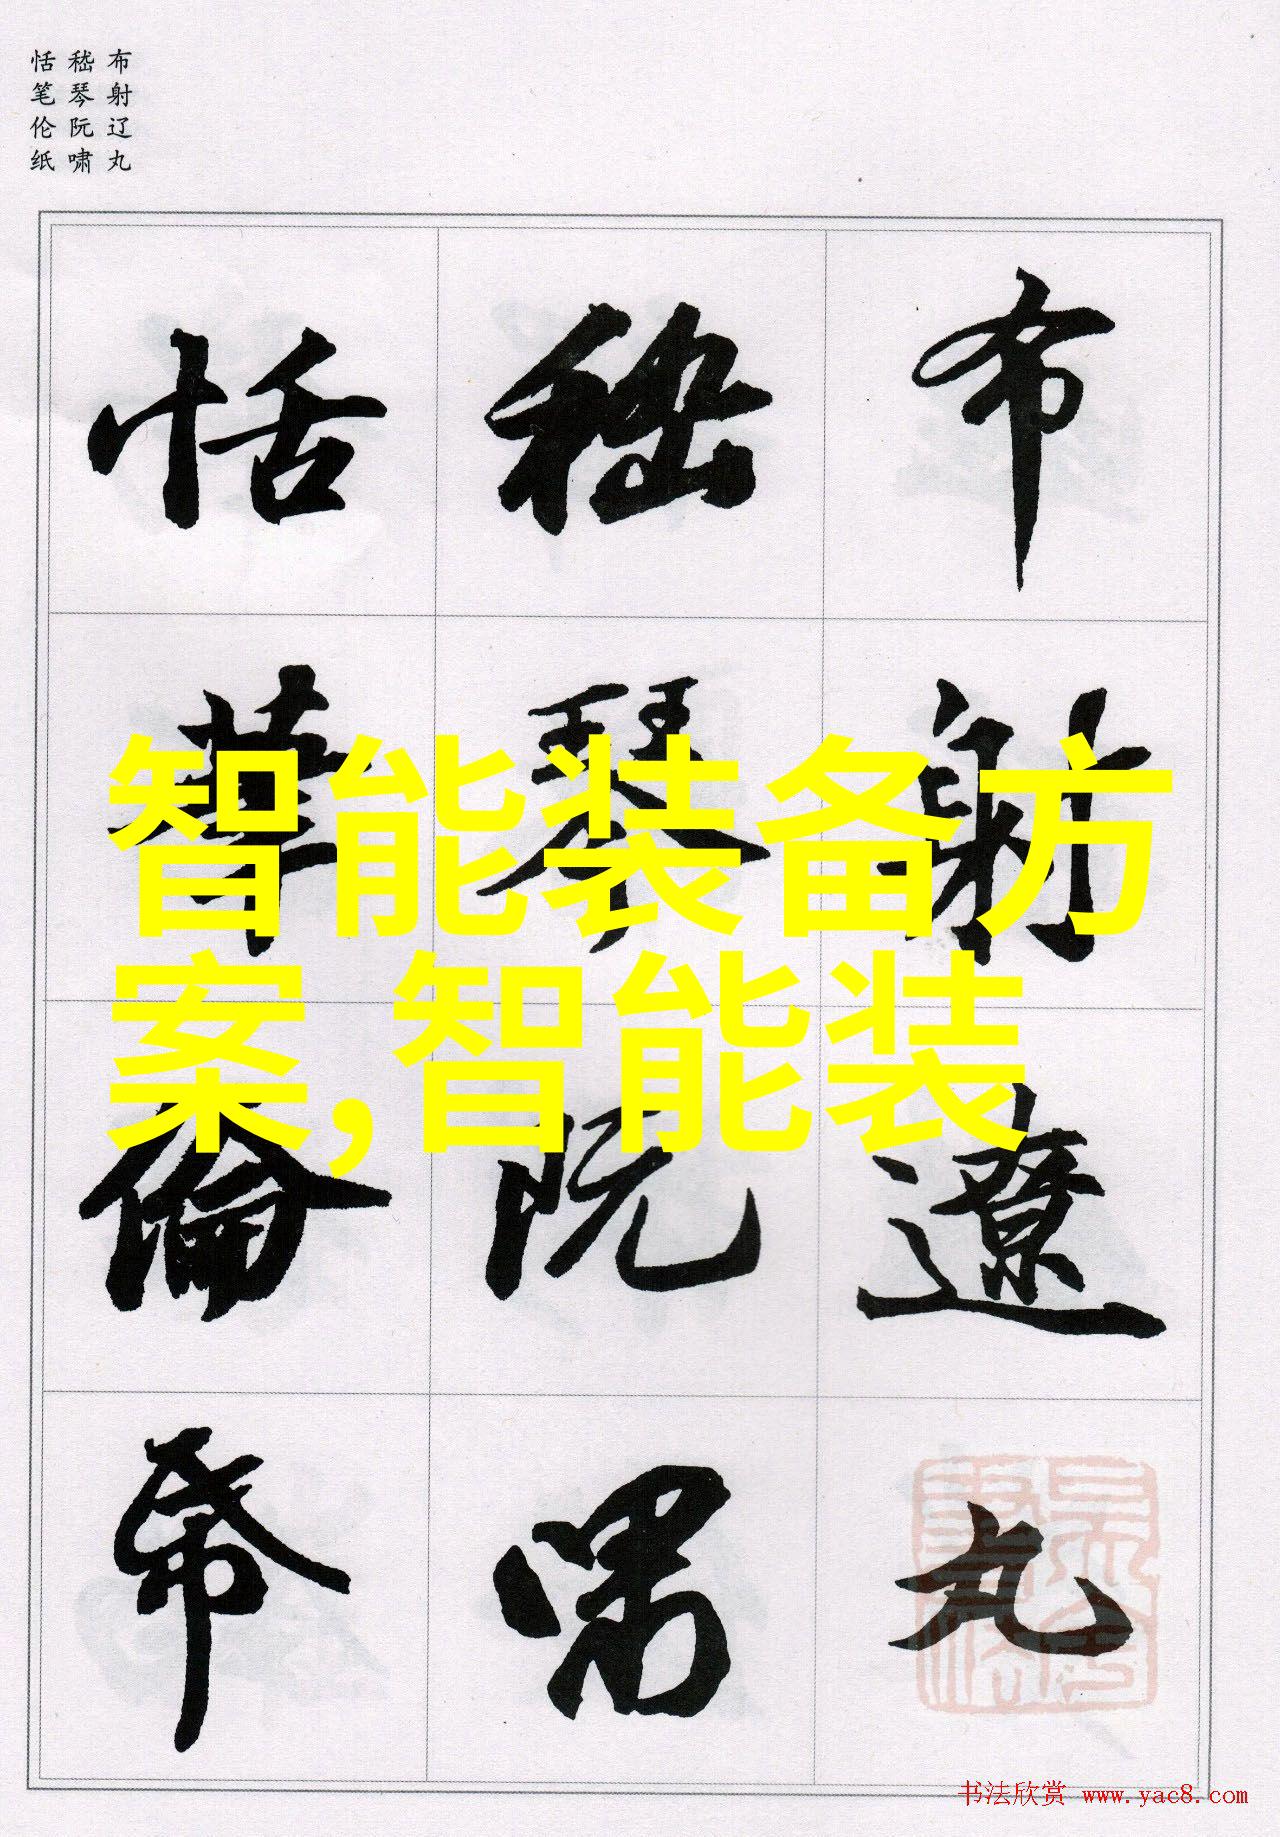 布射辽丸
嵇琴阮啸
恬笔伦纸
布射遼丸
嵇琴阮嘯
恬筆倫帋
智能装备方
案,智能装
书法欣赏 www.yac8.com